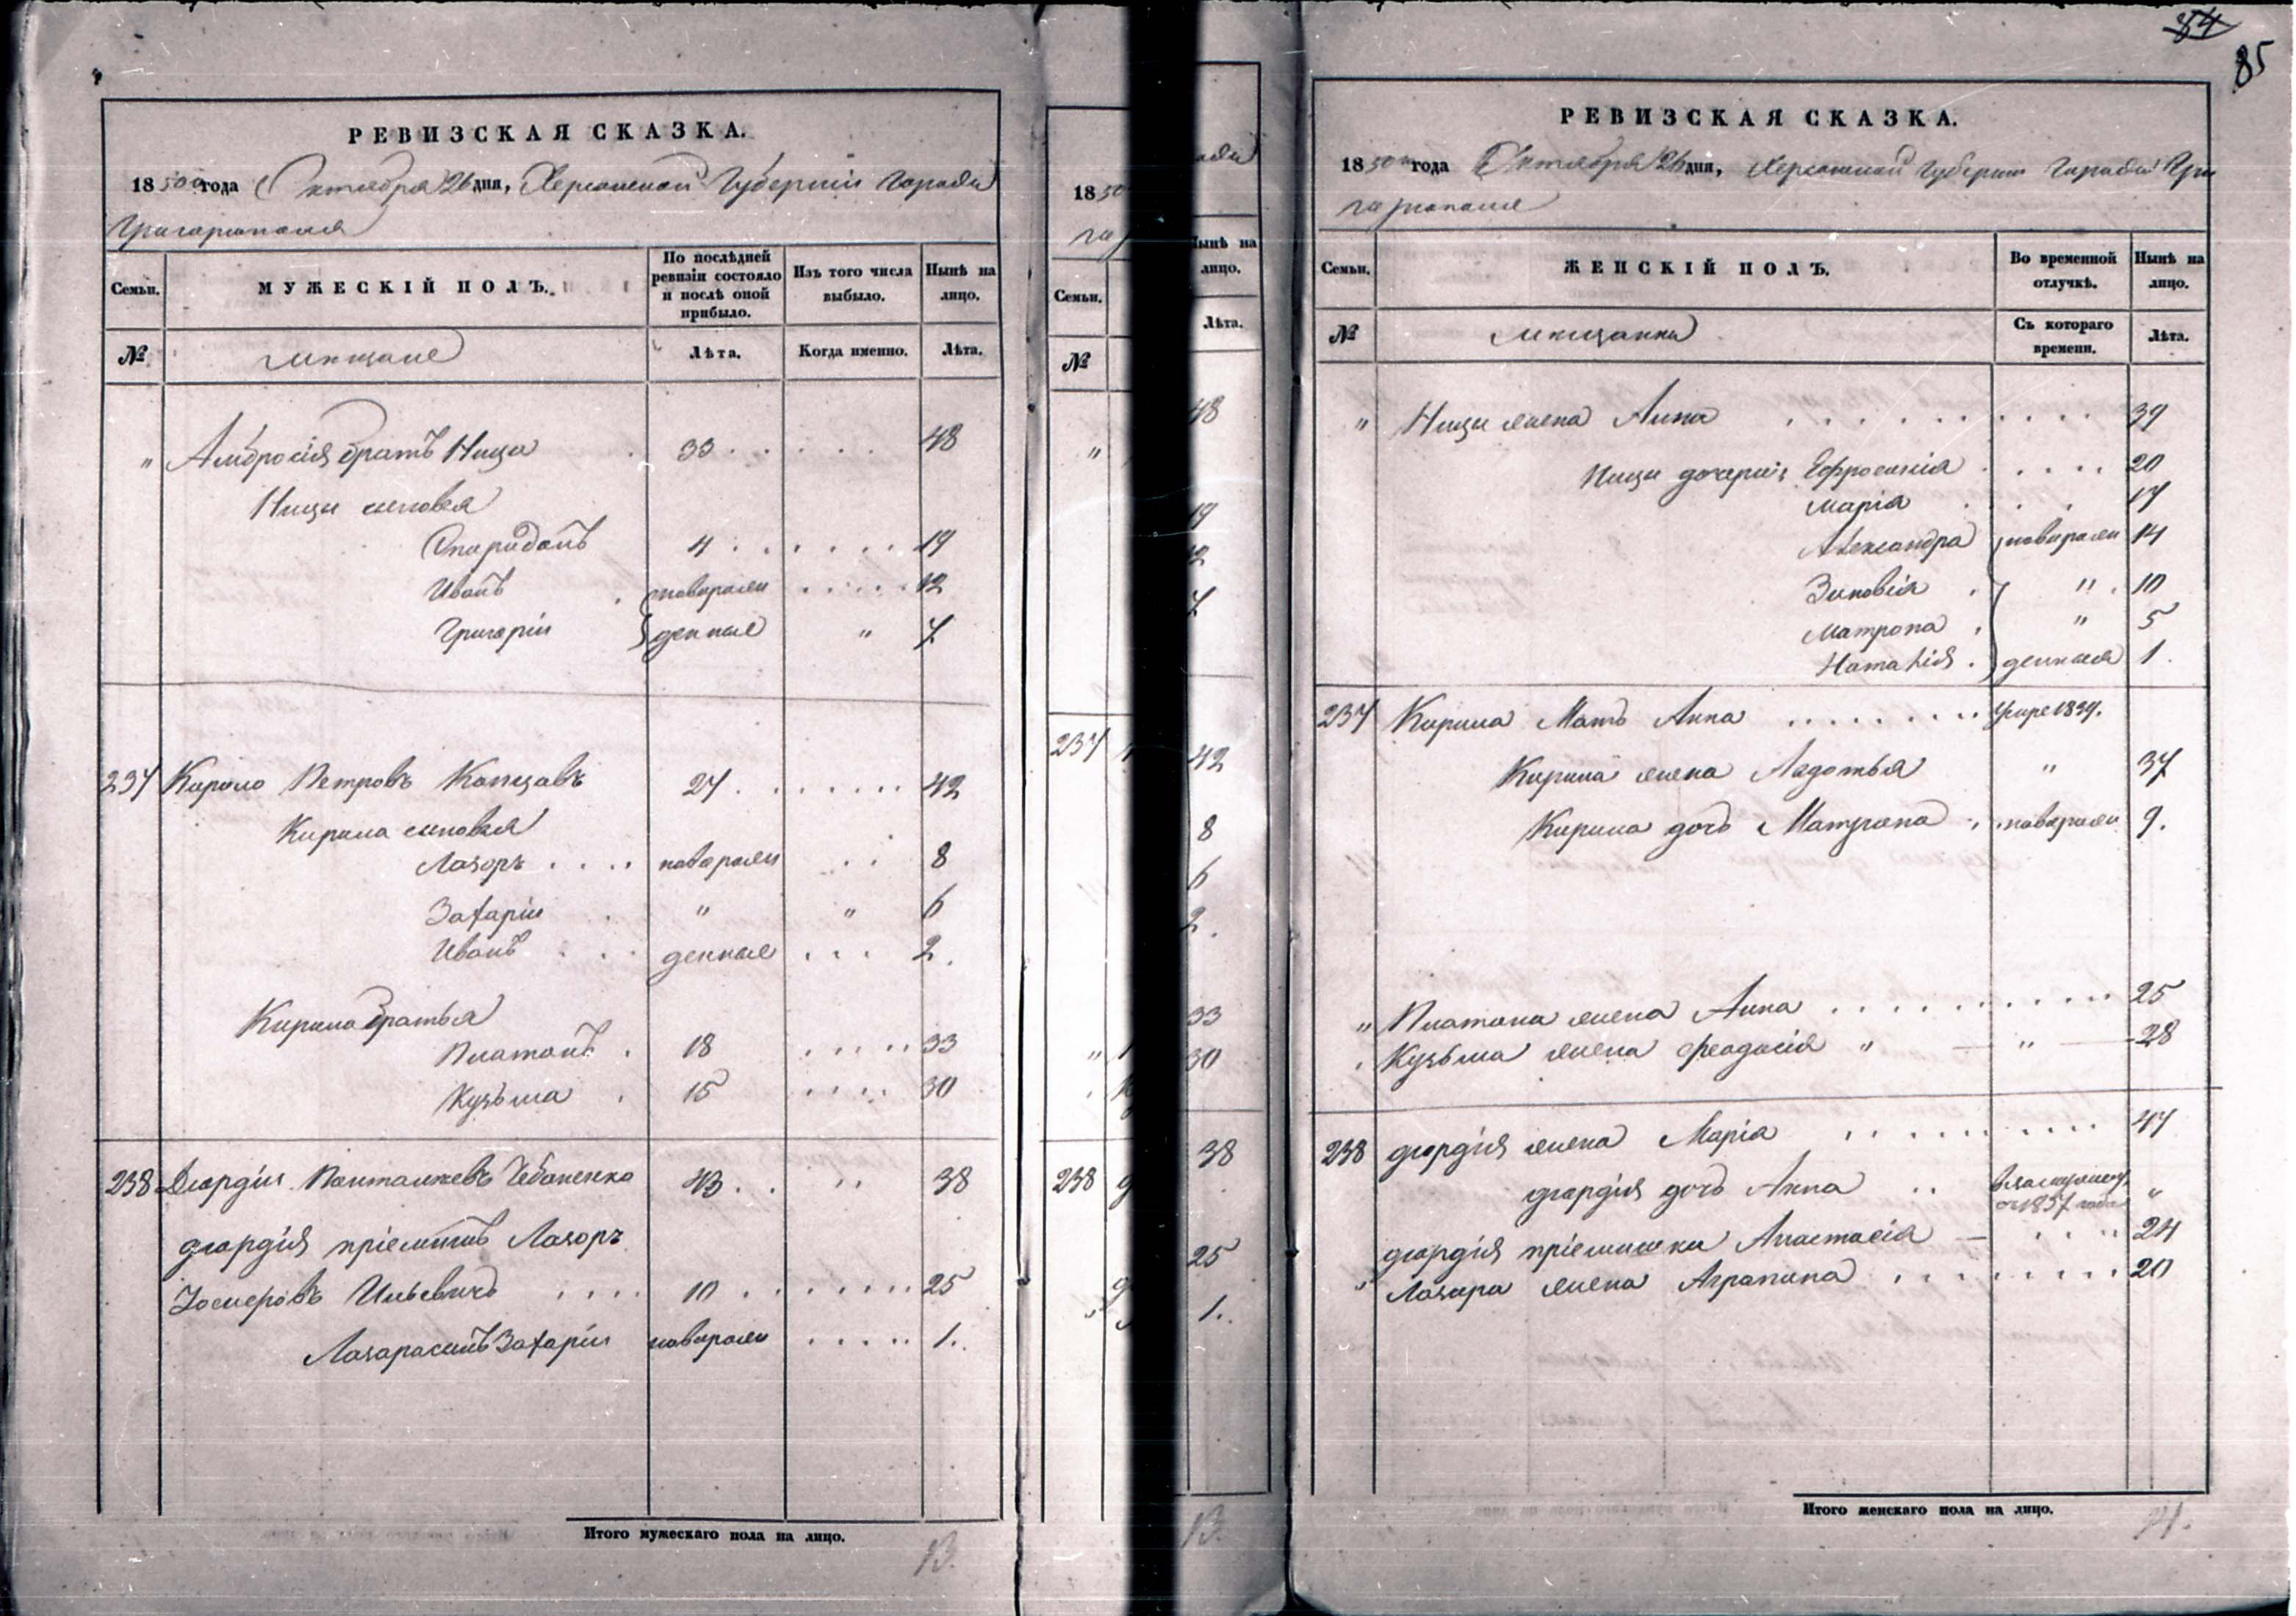 РЕВИЗСКАЯ СКАЗКА.
1850го года Октября 26 дня, Херсонской Губерніи города
Григоріополя
Семьи.
МУЖЕСКІЙ ПОЛЪ.
По послѣдней ревизіи состояло и послѣ оной прибыло.
Изъ того числа выбыло.
Нынѣ на лицо.
№
мещане
Лѣта.
Когда именно.
Лѣта.
" Амбросія братъ Ницы 33 48
Ницы сыновья
Спиридонъ 4 19
Иванъ новорож 12
Григорій денные " 7
237 Кирило Петровъ Концовъ 27 42
Кирила сыновья
Лазорь новорож 8
Захарій " " 6
Иванъ денные 2.
Кирила братья
Платонъ 18 33
Кузьма 15 30
238 Дмордій Панталіевъ Чебаненко 43 38
дмордія пріемышъ Лазорь
Ильевичъ 10 25
Лазара сынъ Захарій новорож 1.
Итого мужескаго пола на лицо. 13.
1850
Семьи.
№
"
237
"
238
Нынѣ на лицо.
Лѣта.
48
19
12
7
42
8
6
2.
33
30
38
25
1.
13.
84
85
РЕВИЗСКАЯ СКАЗКА.
1850го года Октября 26 дня, Херсонской Губерніи города Гри
горіополя
Семьи.
ЖЕНСКІЙ ПОЛЪ.
Во временной отлучкѣ.
Нынѣ на лицо.
№
мещанки
Съ котораго времени.
Лѣта.
" Ницы жена Анна 39
Ницы дочери: Ефросинія 20
Марія 17
Александра новорож 14
Зиновія " 10
Матрона " 5
Наталія денная 1.
237 Кирила Мать Анна умре 1839.
Кирила жена Авдотья " 37
Кирила дочь Матрона новорож 9.
" Платона жена Анна 25
Кузьма жена Феодосія " " 28
238 дмордія жена Марія 47
дмордія дочь Анна въ замужест. от 1837 года "
дмордія пріемышки Анастасія 24
" Лазара жена Аграпина 20
Итого женскаго пола на лицо. 14.